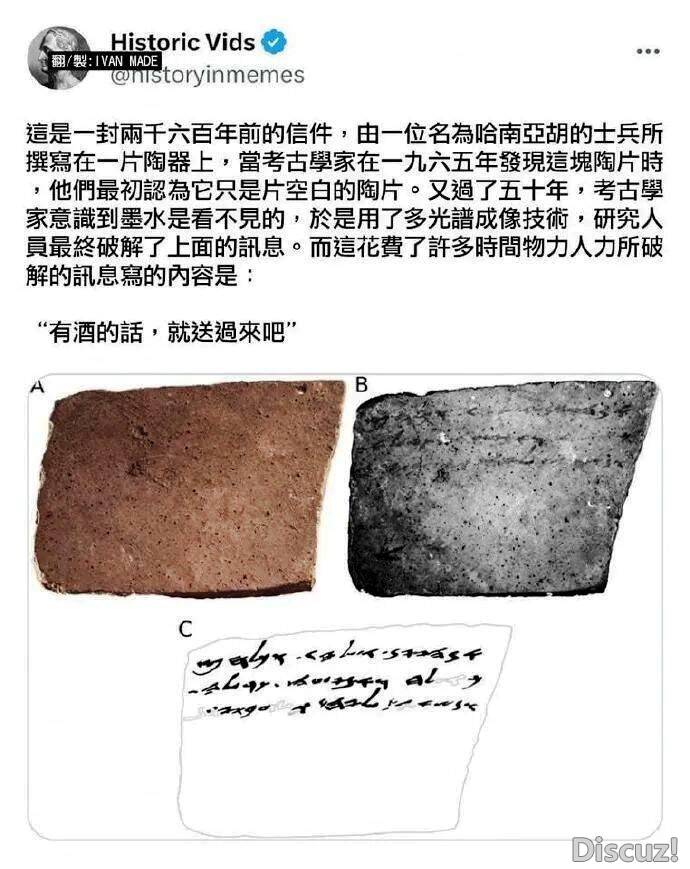 Historic Vids
翻/製:IVAN MADE
@historyinmemes
這是一封兩千六百年前的信件，由一位名為哈南亞胡的士兵所
撰寫在一片陶器上，當考古學家在一九六五年發現這塊陶片時
，他們最初認為它只是片空白的陶片。又過了五十年，考古學
家意識到墨水是看不見的，於是用了多光譜成像技術，研究人
員最終破解了上面的訊息。而這花費了許多時間物力人力所破
解的訊息寫的內容是：
“有酒的話，就送過來吧”
A
B
C
Discuz!